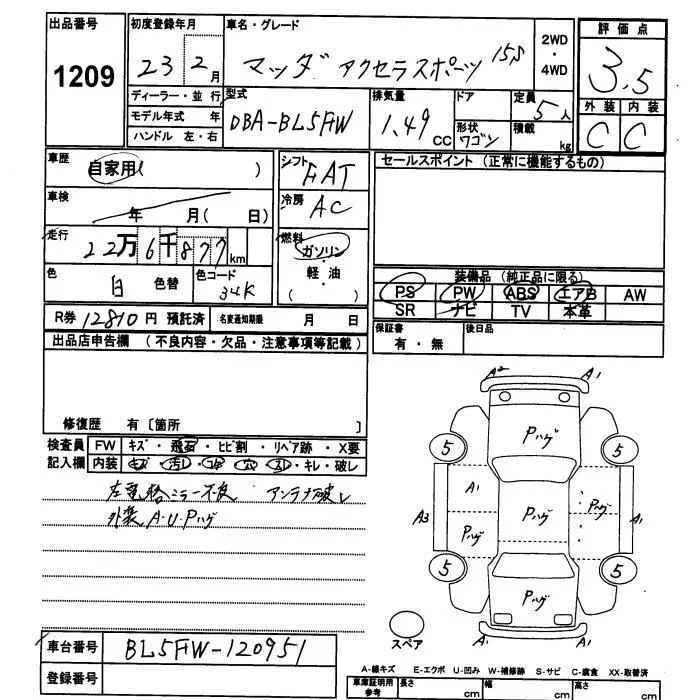 出品番号
1209
初度登録年月
23年 2月
車名・グレード
マツダ アクセラスポーツ 15S
2WD・4WD
評価点
3.5
外装 内装
C C
ディーラー・並行
モデル年式 年
ハンドル 左・右
型式
DBA-BL5FW
排気量
1.49 CC
ドア
形状
ワゴン
定員
5人
積載
kg
車歴
自家用( )
車検
年 月( 日)
走行
22万6千877km
色
白
色替
色コード
34K
シフト
FAT
冷房
AC
燃料
ガソリン
軽・油
( )
セールスポイント (正常に機能するもの)
装備品 (純正品に限る)
PS PW ABS エアB AW
SR ナビ TV 本革
R券 12810 円 預託済
名変通知期限 月 日
保証書
有・無
後日品
出品店申告欄 (不良内容・欠品・注意事項等記載)
修復歴 有〔箇所 〕
検査員記入欄
FW キズ・飛石・ヒビ割・リペア跡・X要
内装 キズ・汚レ・コゲ・穴・スレ・キレ・破レ
左電格ミラー不良 アンテナ破レ
外装 A・U・Pハゲ
A2 A1
Pハゲ
5 5
A1
A3 Pハゲ Pハゲ Pハゲ A1
5 5
Pハゲ
A1 A1
スペア
車台番号
BL5FW-120951
登録番号
A-線キズ E-エクボ U-凹み W-補修跡 S-サビ C-腐食 XX-取替済
車庫証明用参考
長さ cm 幅 cm 高さ cm